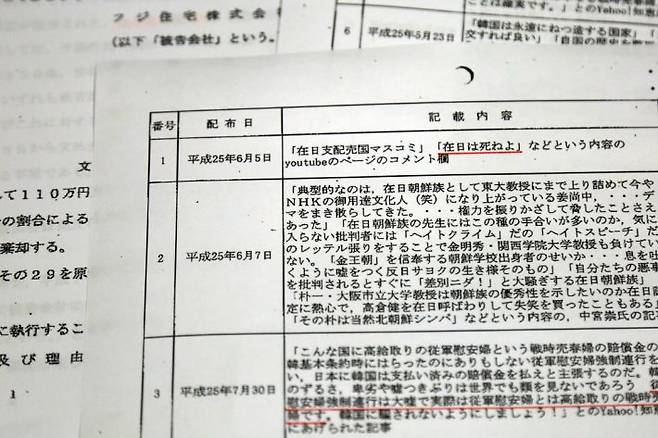 フジ住宅株式会
(以下「被告会社」という。
6 平成25年5月23日 「韓国は永遠にねつ造する国家」
交すれば良い」「自国の歴史を
確実です。」とのYahoo!知恵
文
して110万円
の割合による
棄却する。
その29を原
に執行するこ
及び理由
1
番号 配布日 記載内容
1 平成25年6月5日 「在日支配売国マスコミ」「在日は死ねよ」などという内容の
youtubeのページのコメント欄
2 平成25年6月7日 「典型的なのは、在日朝鮮族として東大教授にまで上り詰めて今や
NHKの御用達文化人(笑)になり上がっている姜尚中、・・・デ
マをまき散らしてきた。・・・権力を振りかざして脅したことさえ
あった」「在日朝鮮族の先生にはこの種の手合いが多いのか、気に
入らない批判者には「ヘイトクライム」だの「ヘイトスピーチ」だ
のレッテル張りをすることで金明秀・関西学院大学教授も負けてい
ない。「金王朝」を信奉する朝鮮学校出身者のせいか・・・息を吐
くように嘘をつく反日サヨクの生き様そのもの」「自分たちの悪事
を批判されるとすぐに「差別ニダ!」と大騒ぎする在日朝鮮族」
「朴一・大阪市立大学教授は朝鮮族の優秀性を示したいのか在日認
定に熱心で、高倉健を在日呼ばわりして失笑を買ったこともある」
「その朴は当然北朝鮮シンパ」などという内容の、中宮崇氏の記
3 平成25年7月30日 「こんな国に高給取りの従軍慰安婦という戦時売春婦の賠償金の
韓基本条約時にはらったのにありもしない従軍慰安婦強制連行を
い、日本に韓国は支払い済みの賠償金を払えと主張するのだ。韓
のずるさ、卑劣や嘘つきぶりは世界でも類を見ないであろう 従
慰安婦強制連行は大嘘で実際は従軍慰安婦とは高給取りの戦時売
婦です。韓国に騙されないようにしましょう!」とのYahoo!知恵
にあげられた記事